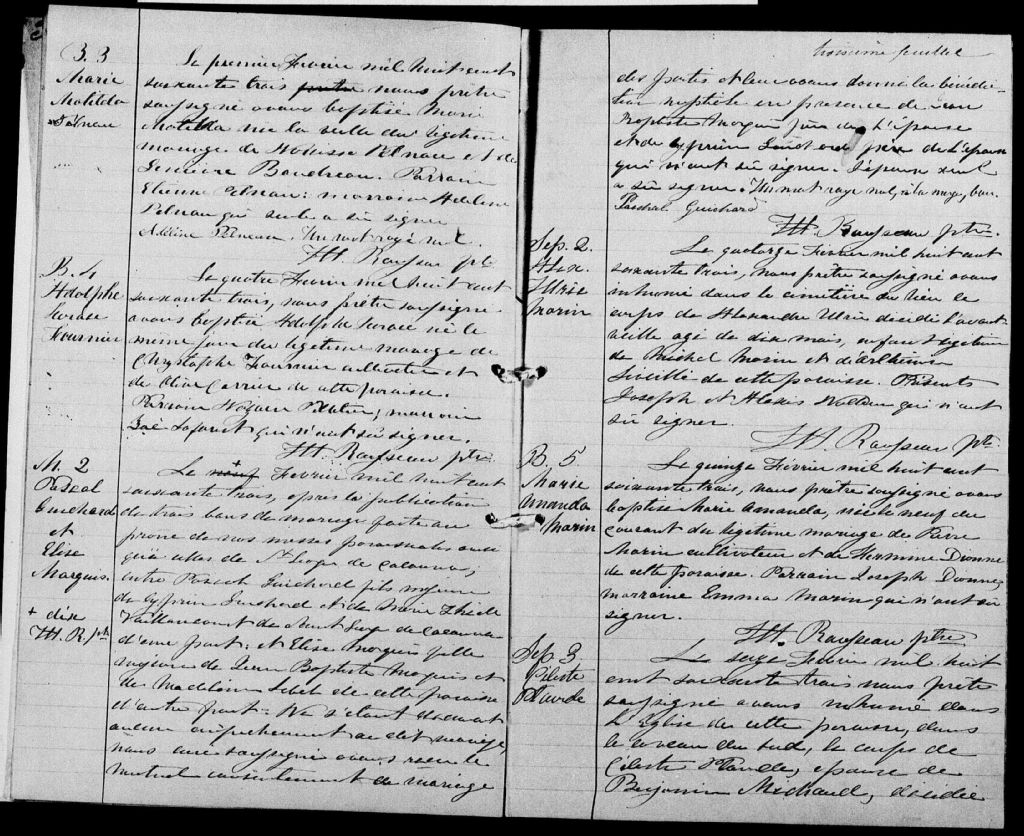 B. 3
Marie
Matilda
Pelneau
Le premier Fevrier mil huit cent
soixante trois nous prêtre
soussigné avons baptisé Marie
Matilda née la veille du légitime
mariage de Pelneau et de
Boudreau. Parrain
Etienne Pelneau; marraine Adeline
Pelneau qui seule a su signer.
Adeline Pelneau. Un mot rayé nul.
J.H. Rousseau ptre
B. 4
Adolphe
Horace
Fournier
Le quatre Fevrier mil huit cent
soixante trois, nous prêtre soussigné
avons baptisé Adolphe Horace né le
même jour du légitime mariage de
Chrystophe Fournier cultivateur et
de Carrier de cette paroisse.
Parrain Pelletier, marraine
qui n'ont su signer.
J.H. Rousseau ptre
M. 2
Pascal
Guichard
et
Elise
Marquis.
+ dix
J.H. R. ptr
Le neuf + Fevrier mil huit cent
soixante trois, après la publication
de trois bans de mariage faite au
prône de nos messes paroissiales ainsi
qu'à celles de St
entre Pascal Guichard fils mineur
de Cyprien Guichard et de Marie
Vaillancourt de
d'une part; et Elise Marquis fille
mineure de Jean Baptiste Marquis et
de Madeleine Lebel de cette paroisse
d'autre part: Ne s'étant découvert
aucun empêchement au dit mariage,
nous curé soussigné avons reçu le
mutuel consentement de mariage
troisième feuillet
des parties et leur avons donné la bénédic-
tion nuptiale en presence de Jean
Baptiste Marquis père de l'épouse
et de Cyprien Guichard père de l'époux
qui n'ont su signer. L'épouse seul
a su signer. Un mot rayé nul, à la marge, bon.
Paschal Guichard
J.H. Rousseau ptre.
Sep. 2.
Alex.
Ulric
Morin
Le quatorze Fevrier mil huit cent
soixante trois, nous prêtre soussigné avons
inhumé dans le cimetière du lieu le
corps de Alexandre Ulric décédé l'avant
veille agé de dix mois, enfant légitime
de Michel Morin et d'Arthémise
de cette paroisse. Présents
Joseph et Alexis qui n'ont
su signer.
J.H. Rousseau ptr
B. 5.
Marie
Amanda
Morin
Le quinze Fevrier mil huit cent
soixante trois, nous prêtre soussigné avons
baptisé Marie Amanda, née le neuf du
courant du légitime mariage de Pierre
Morin cultivateur et de Hermine Dionne
de cette paroisse. Parrain Joseph Dionne,
marraine Emma Morin qui n'ont su
signer.
J.H. Rousseau ptre
Sep. 3
Céleste
Plourde
Le seize Fevrier mil huit
cent soixante trois nous prêtre
soussigné avons inhumé dans
l'Eglise de cette paroisse, dans
le caveau du sud, le corps de
Céleste Plourde, épouse de
Benjamin Michaud, décédée